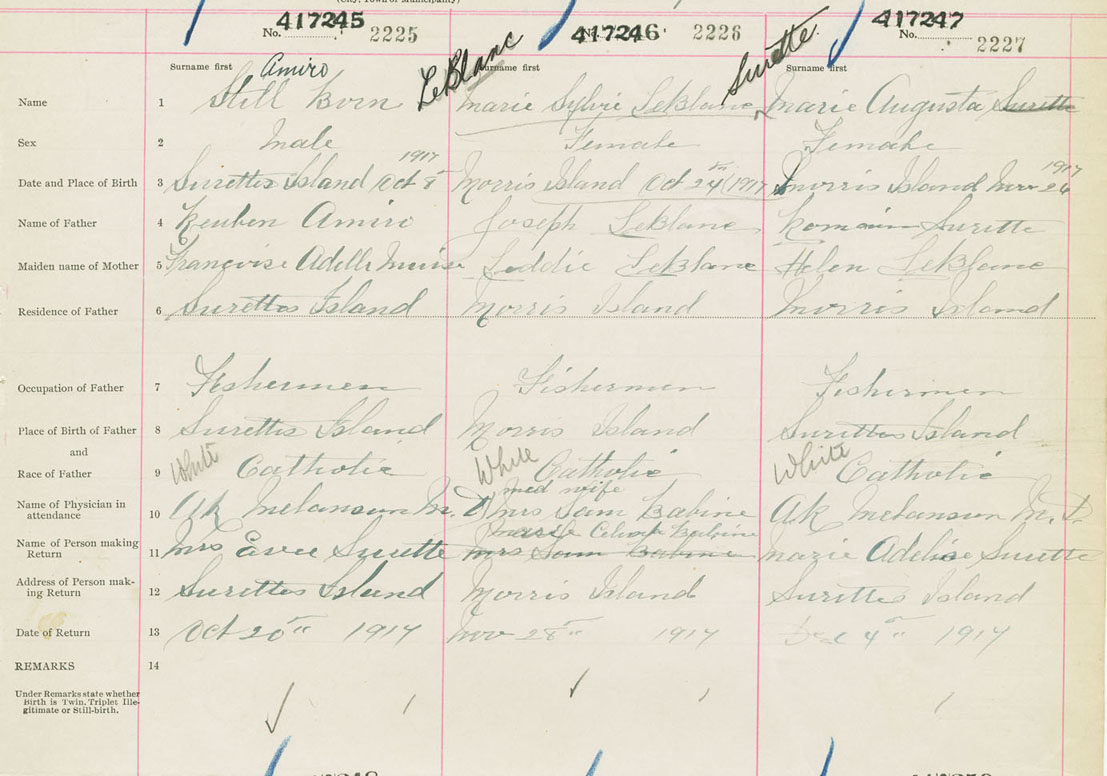 (City, Town or Municipality)
417245 417246 417247
No. 2225 No. 2226 No. 2227
Surname first Amiro LeBlanc Surname first Surette Surname first
Name 1 Still Born Marie Sylvie LeBlanc Marie Augusta Surette
Sex 2 Male Female Female
1917 1917
Date and Place of Birth 3 Surettes Island Oct 8th Morris Island Oct 24th 1917 Morris Island Nov 26
Name of Father 4 Reuben Amiro Joseph LeBlanc Romain Surette
Maiden name of Mother 5 Françoise Adelle Muise Leddie LeBlanc Helen LeBlanc
Residence of Father 6 Surettes Island Morris Island Morris Island
Occupation of Father 7 Fishermen Fishermen Fishermen
Place of Birth of Father 8 Surettes Island Morris Island Surettes Island
and
Race of Father 9 White Catholic White Catholic White Catholic
med wife
Name of Physician in attendance 10 AK Melanson M.D. Mrs Sam Babine AK Melanson M.D.
Babine
Name of Person making Return 11 Mrs Evee Surette Mrs Sam Babine Marie Adelise Surette
Address of Person making Return 12 Surettes Island Morris Island Surettes Island
Date of Return 13 Oct 20th 1917 Nov 28th 1917 Dec 4th 1917
REMARKS 14
Under Remarks state whether
Birth is Twin, Triplet Ille-
gitimate or Still-birth.